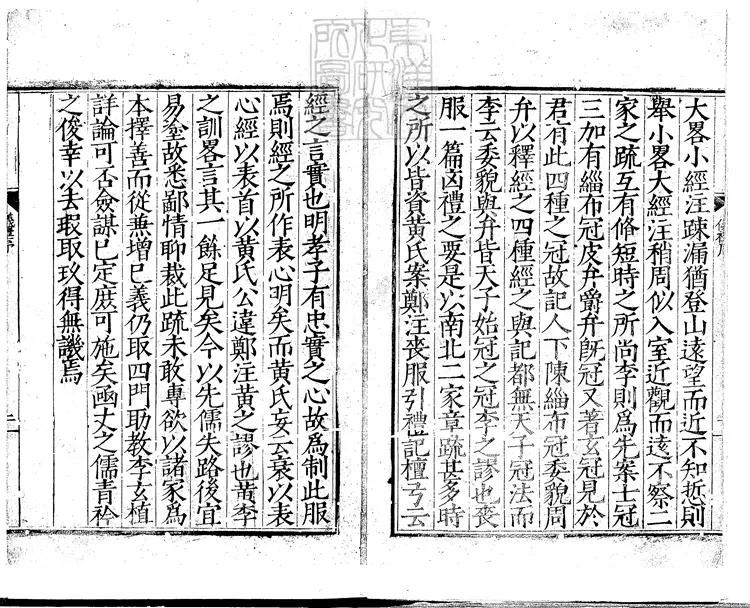 大畧小經注疎漏猶登山遠望而近不知悊則
舉小畧大經注稍周似入室近觀而遠不察二
家之疏互有脩短時之所尚李則爲先案士冠
三加有緇布冠皮弁爵弁旣冠又著玄冠見於
君有此四種之冠故記人下陳緇布冠委貌周
弁以釋經之四種經之與記都無天子冠法而
李云委貌與弁皆天子始冠之冠李之謬也喪
服一篇凶禮之要是以南北二家章疏甚多時
之所以皆資黃氏案鄭注喪服引禮記檀弓云
經之言實也明孝子有忠實之心故爲制此服
焉則經之所作表心明矣而黃氏妄云衰以表
心經以表首以黃氏公違鄭注黃之謬也黃李
之訓畧言其一餘足見矣今以先儒失路後宜
易塗故悉鄙情聊裁此疏未敢專欲以諸家爲
本擇善而從兼增已義仍取四門助教李玄植
詳論可否僉謀已定庶可施矣函丈之儒青衿
之俊幸以去瑕取玖得無譏焉